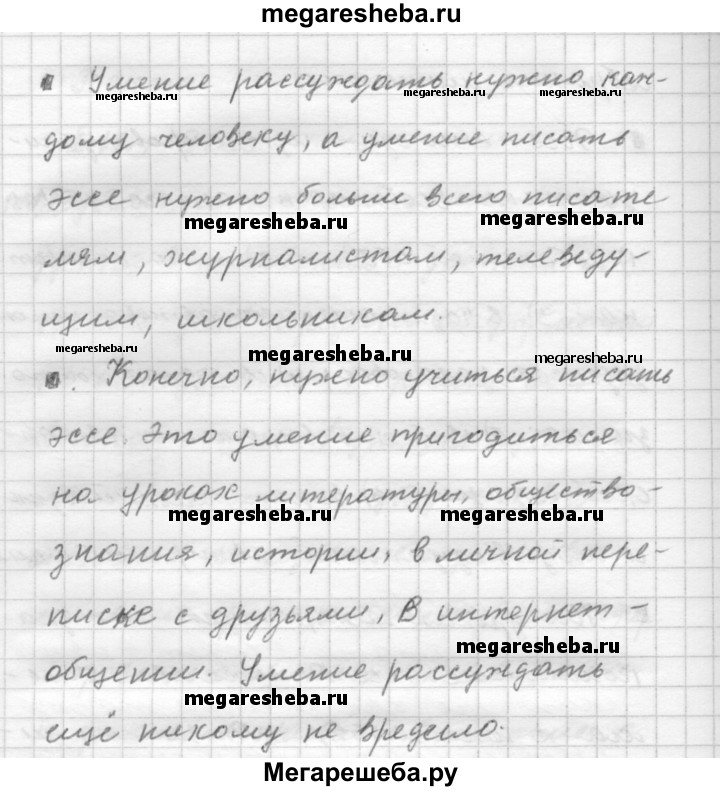 megaresheba.ru
Умение рассуждать нужно каж-
megaresheba.ru megaresheba.ru megaresheba.ru
дому человеку, а умение писать
эссе нужно больше всего писате
megaresheba.ru megaresheba.ru
лям, журналистам, телеведу-
щим, школьникам.
megaresheba.ru megaresheba.ru megaresheba.ru
Конечно, нужно учиться писать
эссе. Это умение пригодиться
на уроках литературы, общество-
megaresheba.ru megaresheba.ru
знания, истории, в личной пере-
писке с друзьями, в интернет-
megaresheba.ru
общении. Умение рассуждать
megaresheba.ru
ещё никому не вредило.
Мегарешеба.ру